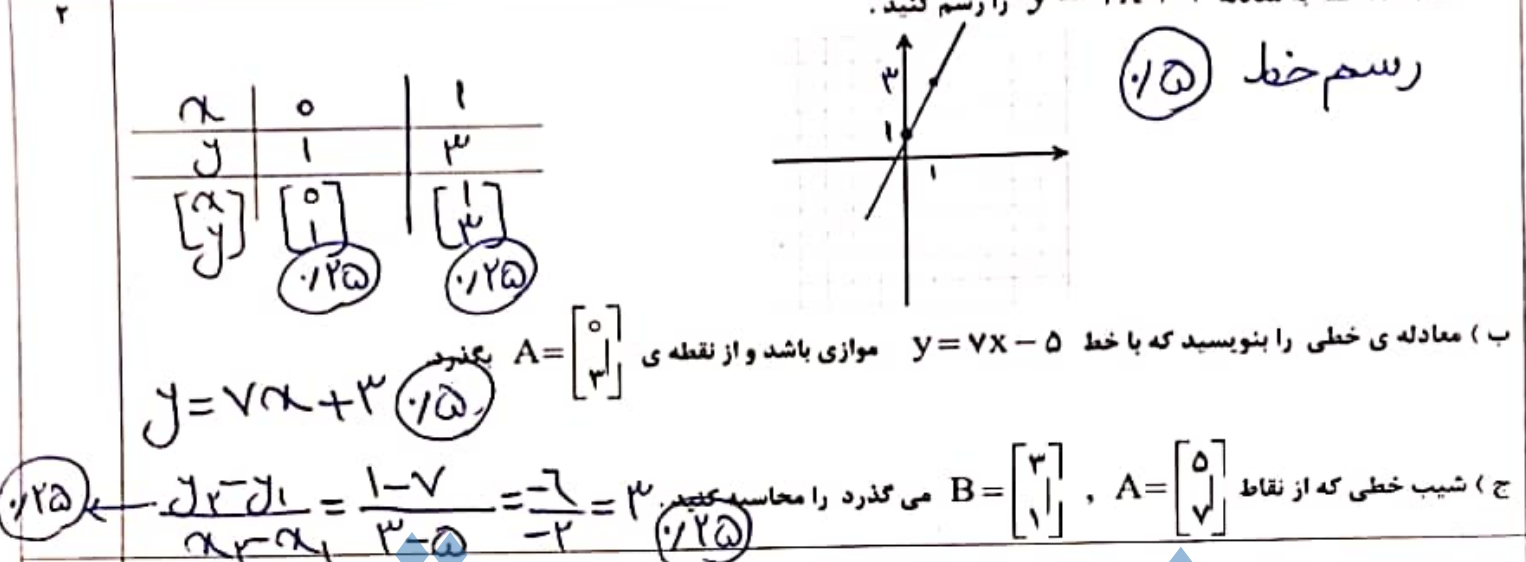 ۲
را رسم کنید .
رسم خط ۰/۵
۳
۱
۱
x ۰ ۱
y ۱ ۳
[x y] [۰ ۱] [۱ ۳]
۰/۲۵ ۰/۲۵
ب ) معادله ی خطی را بنویسید که با خط y = ۷x − ۵ موازی باشد و از نقطه ی A = [۰ ۳] بگذرد
y = ۷x + ۳ ۰/۵
ج ) شیب خطی که از نقاط A = [۵ ۷] , B = [۳ ۱] می گذرد را محاسبه کنید.
y۲ − y۱ / x۲ − x۱ = ۱ − ۷ / ۳ − ۵ = −۶ / −۲ = ۳ ۰/۲۵
۰/۲۵